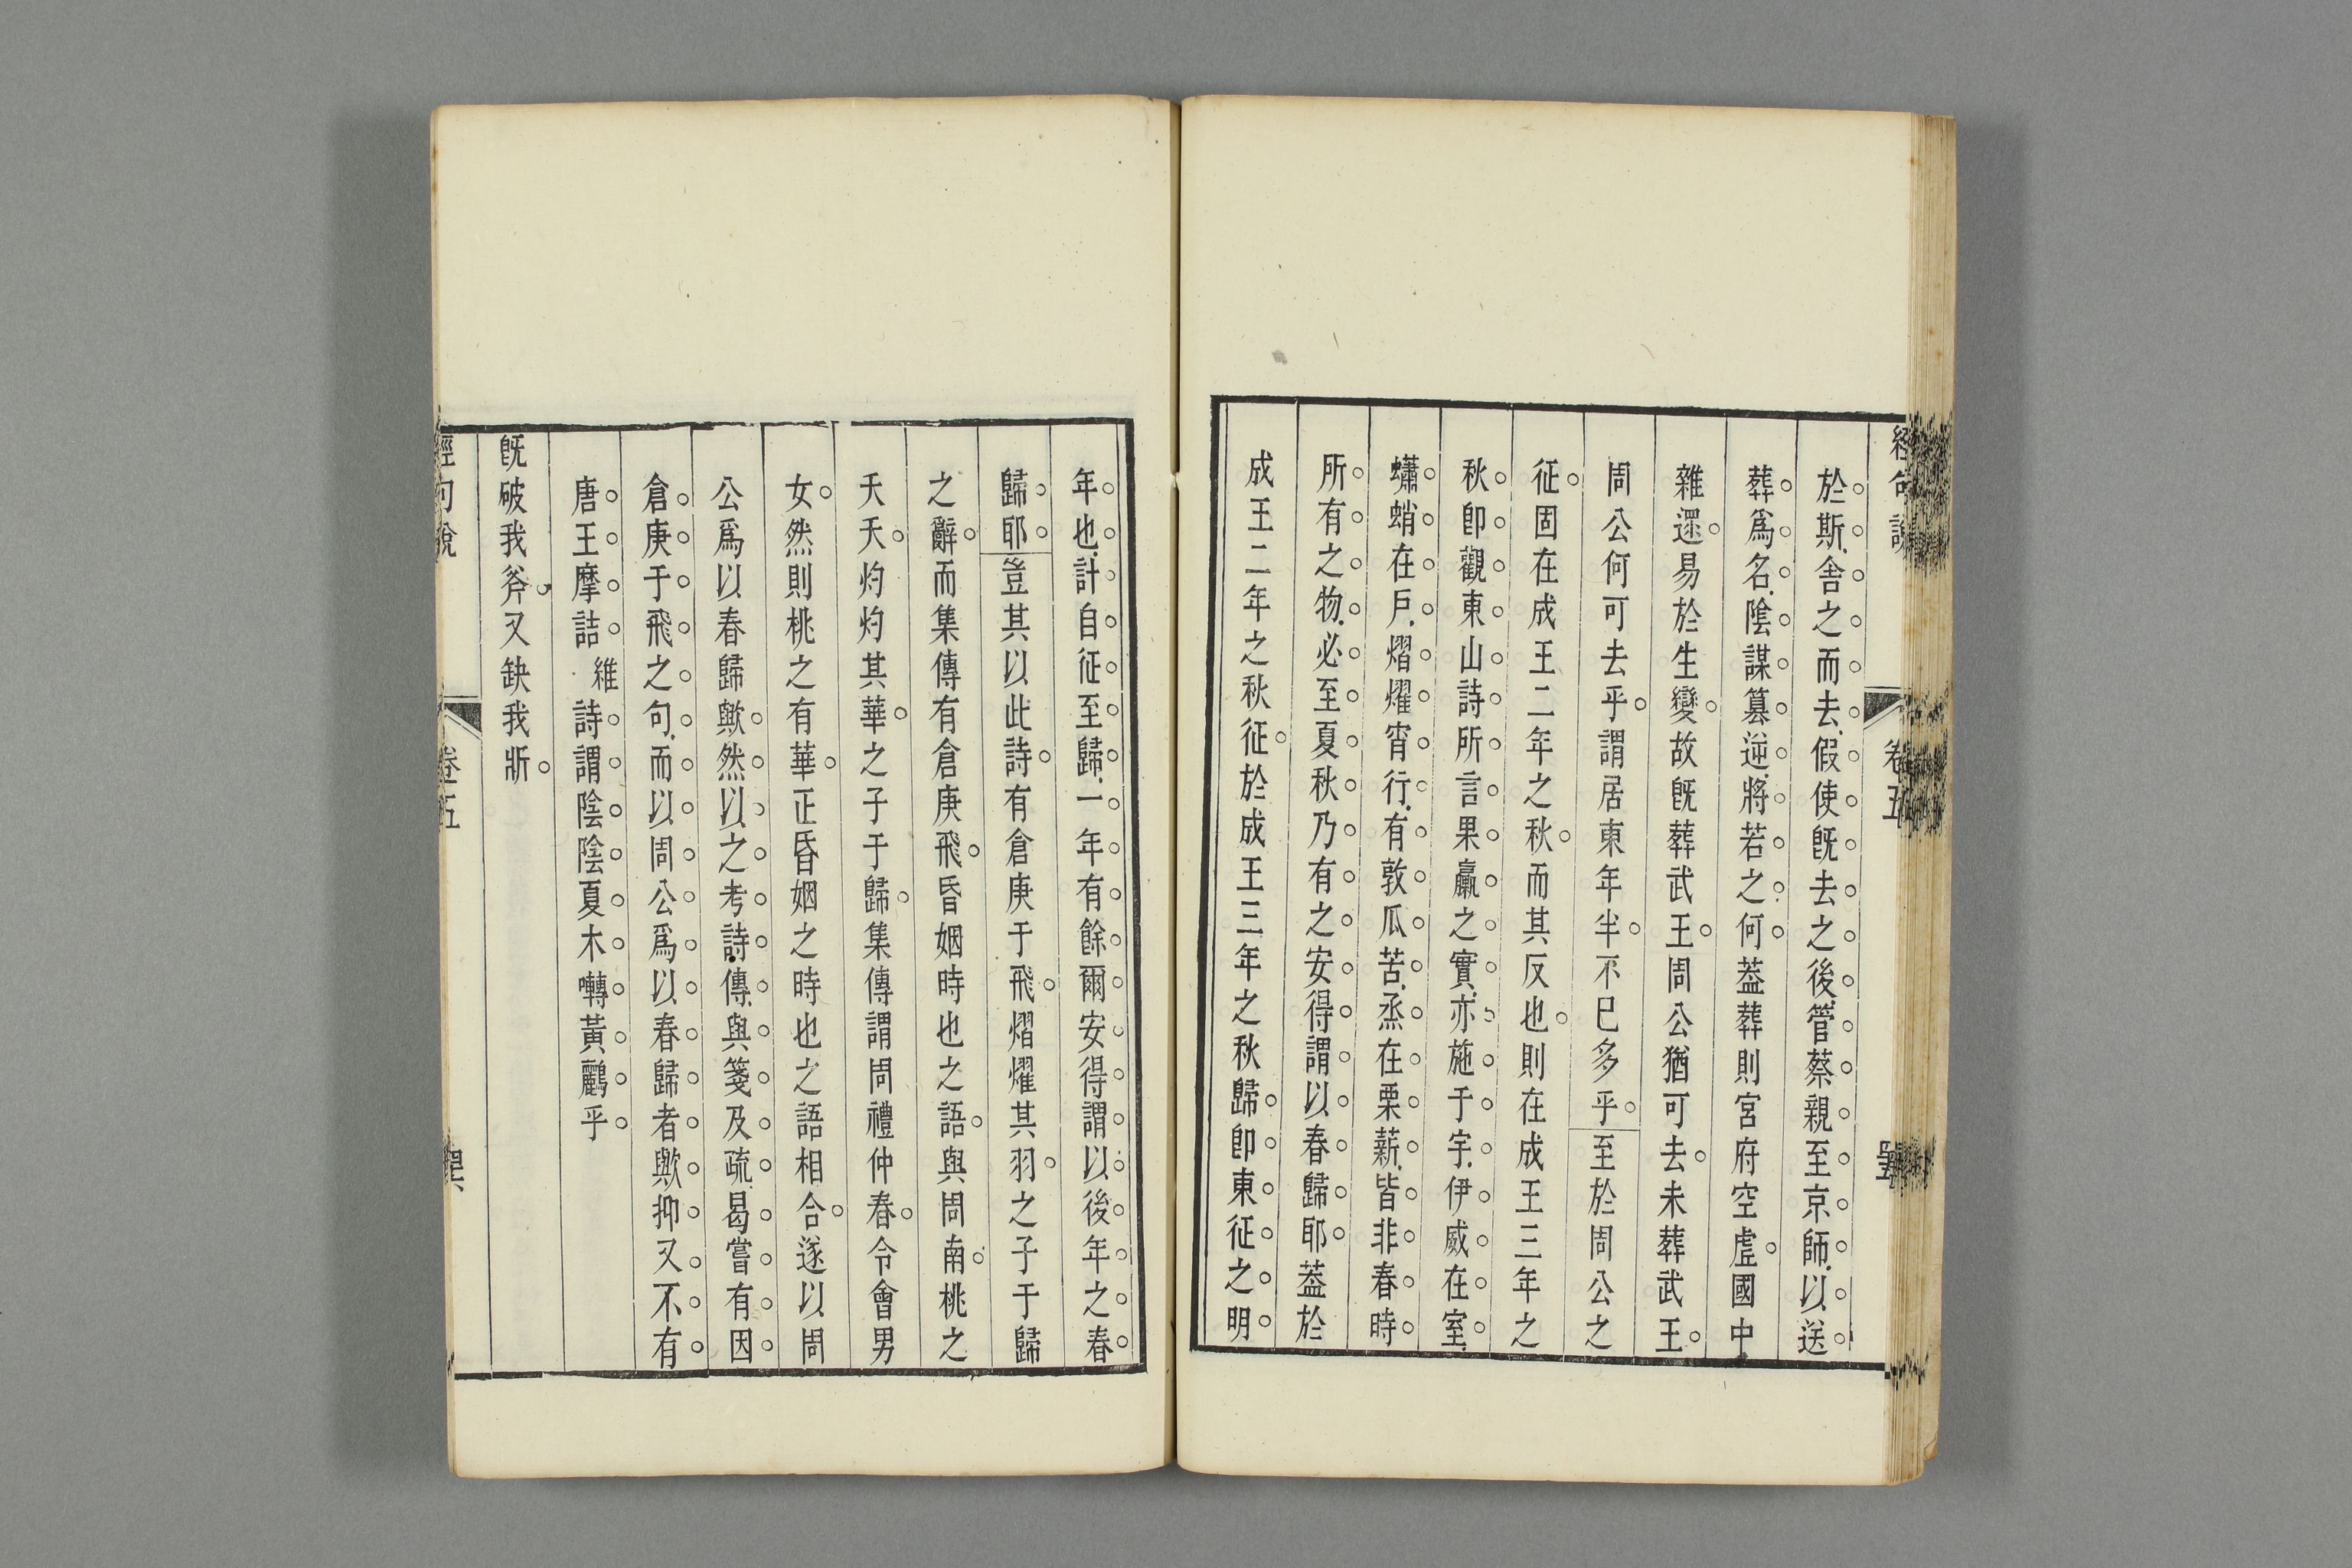 於斯舍之而去假使旣去之後管蔡親至京師以送
葬爲名陰謀篡逆將若之何葢葬則宮府空虛國中
雜遝易於生變故旣葬武王周公猶可去未葬武王
周公何可去乎謂居東年半不已多乎至於周公之
征固在成王二年之秋而其反也則在成王三年之
秋卽觀東山詩所言果臝之實亦施于宇伊威在室
蠨蛸在戶熠燿宵行有敦瓜苦烝在栗薪皆非春時
所有之物必至夏秋乃有之安得謂以春歸耶葢於
成王二年之秋征於成王三年之秋歸卽東征之明
年也計自征至歸一年有餘爾安得謂以後年之春
歸耶豈其以此詩有倉庚于飛熠燿其羽之子于歸
之辭而集傳有倉庚飛昏姻時也之語與周南桃之
夭夭灼灼其華之子于歸集傳謂周禮仲春令會男
女然則桃之有華正昏姻之時也之語相合遂以周
公爲以春歸歟然以之考詩傳與箋及疏曷嘗有因
倉庚于飛之句而以周公爲以春歸者歟抑又不有
唐王摩詰維詩謂陰陰夏木囀黃鸝乎
旣破我斧又缺我斨
卷五